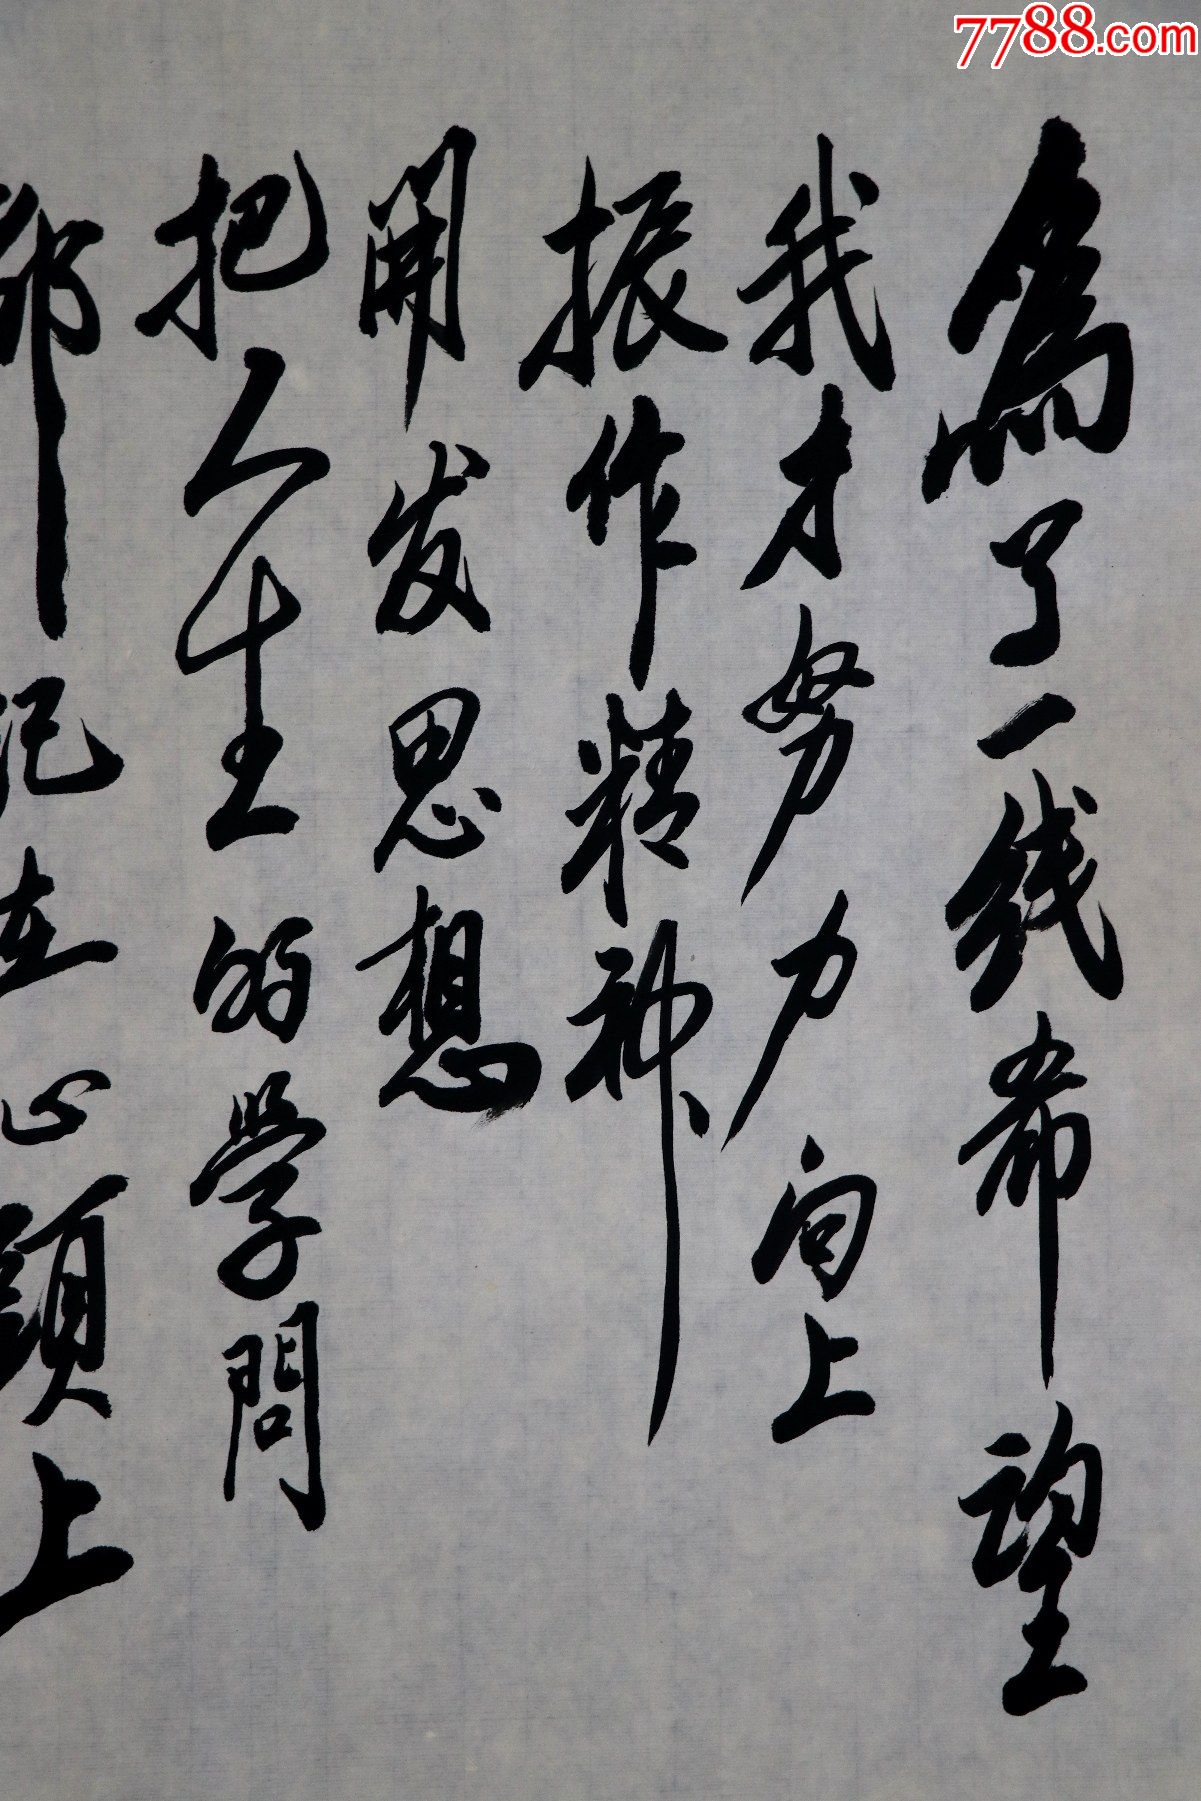 7788.com
為了一线希望
我才努力向上
振作精神
開发思想
把人生的学問
都记在心頭上